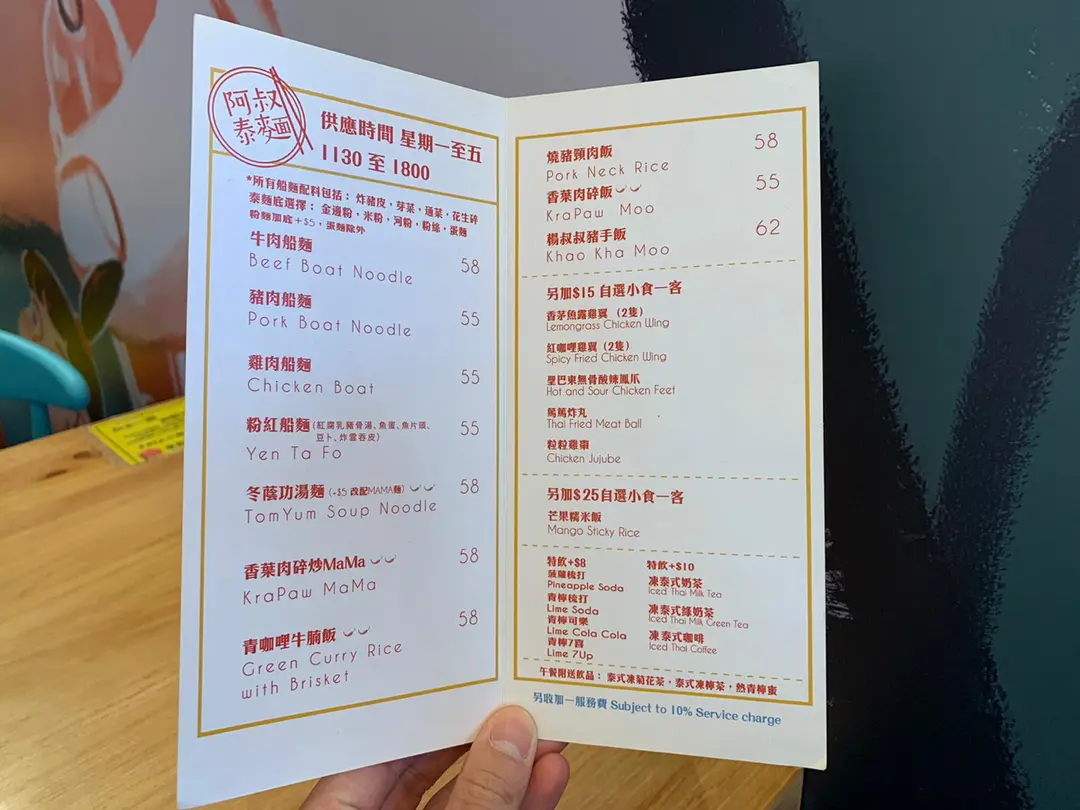 阿叔
泰麵
供應時間 星期一至五
1130 至 1800
*所有船麵配料包括：炸豬皮，芽菜，通菜，花生碎
泰麵底選擇：金邊粉，米粉，河粉，粉絲，蛋麵
粉麵加底+$5，蛋麵除外
牛肉船麵
Beef Boat Noodle 58
豬肉船麵
Pork Boat Noodle 55
雞肉船麵
Chicken Boat 55
粉紅船麵(紅腐乳豬骨湯、魚蛋、魚片頭、
豆卜、炸雲吞皮) 55
Yen Ta Fo
冬蔭功湯麵(+$5 改配MAMA麵) 58
TomYum Soup Noodle
香葉肉碎炒MaMa 58
KraPaw MaMa
青咖哩牛腩飯 58
Green Curry Rice
with Brisket
燒豬頸肉飯 58
Pork Neck Rice
香葉肉碎飯 55
KraPaw Moo
楊叔叔豬手飯 62
Khao Kha Moo
另加$15 自選小食一客
香茅魚露雞翼（2隻）
Lemongrass Chicken Wing
紅咖哩雞翼（2隻）
Spicy Fried Chicken Wing
皇巴東無骨酸辣鳳爪
Hot and Sour Chicken Feet
篤篤炸丸
Thai Fried Meat Ball
粒粒雞棗
Chicken Jujube
另加$25自選小食一客
芒果糯米飯
Mango Sticky Rice
特飲+$8
菠蘿梳打
Pineapple Soda
青檸梳打
Lime Soda
青檸可樂
Lime Cola Cola
青檸7喜
Lime 7Up
特飲+$10
凍泰式奶茶
Iced Thai Milk Tea
凍泰式綠奶茶
Iced Thai Milk Green Tea
凍泰式咖啡
Iced Thai Coffee
午餐附送飲品：泰式凍菊花茶，泰式凍檸茶，熱青檸蜜
另收加一服務費 Subject to 10% Service charge